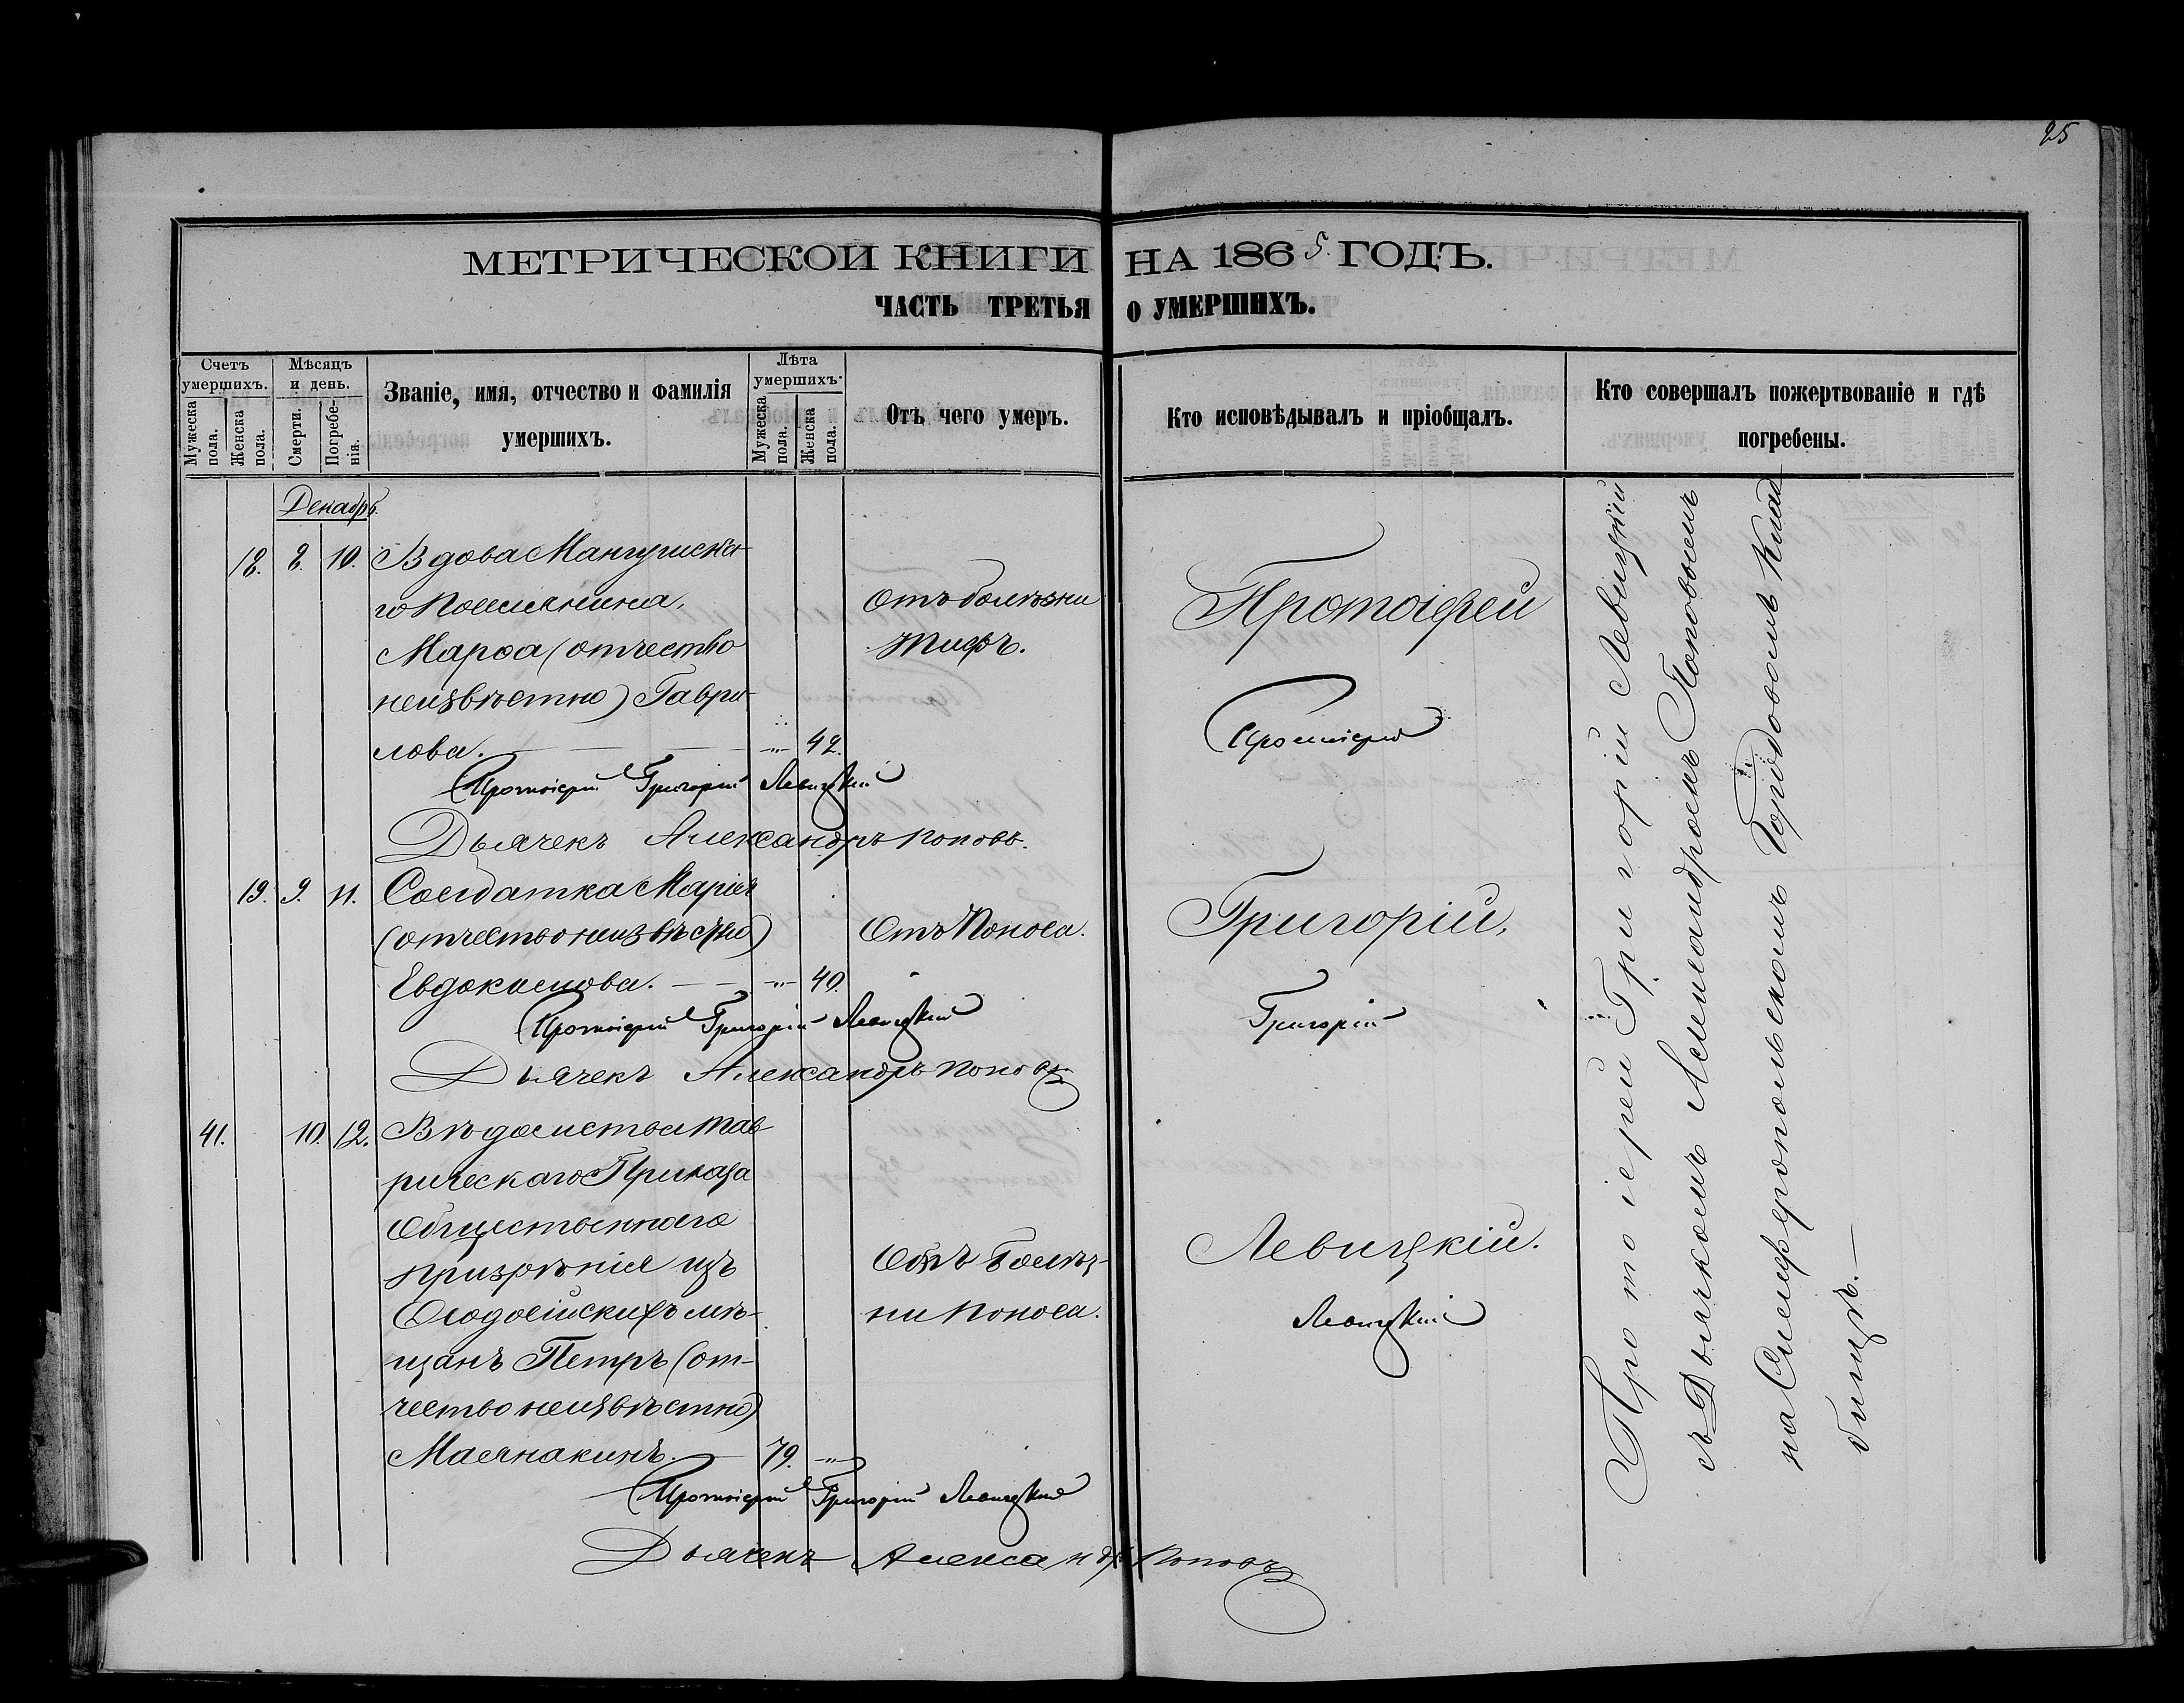 25
МЕТРИЧЕСКОИ КНИГИ НА 1865 ГОДЪ.
ЧАСТЬ ТРЕТЬЯ О УМЕРШИХЪ.
Счетъ умершихъ.
Мужеска пола.
Женска пола.
Мѣсяцъ и день.
Смерти.
Погребенія.
Званіе, имя, отчество и фамилія
умершихъ.
Лѣта умершихъ.
Мужеска пола.
Женска пола.
Отъ чего умеръ.
Кто исповѣдывалъ и пріобщалъ.
Кто совершалъ пожертвованіе и гдѣ
погребены.
Декабрь.
18. 8. 10. Вдова Мангушска-
го Поселянина,
Марѳа (отчество
неизвѣстно) Гаври-
лова. — — — -"- 42.
Отъ болѣзни
тифъ.
Протоіерей Григорій Левицкій
Дьячекъ Александръ Поповъ.
19. 9. 11. Солдатка Марія
(отчество неизвѣстно)
Евдокимова. — — -"- 40.
Отъ Поноса.
Протоіерей Григорій Левицкій
Дьячекъ Александръ Поповъ
41. 10. 12. Вѣдомства Тав-
рическаго Приказа
Общественнаго
Призрѣнія изъ
Ѳеодосійскихъ мѣ-
щанъ Петръ (от-
чество неизвѣстно)
Маслакинъ. — 79. -"-
Отъ Болѣз-
ни Поноса.
Протоіерей Григорій Левицкій
Дьячекъ Александръ Поповъ
Протоіерей
Протоіерей
Григорій,
Григорій
Левицкій.
Левицкій
Протоіерей Григорій Левицкій
съ Дьячкомъ Александромъ Поповымъ
на Симферопольскомъ Городовомъ Клад-
бищѣ.—